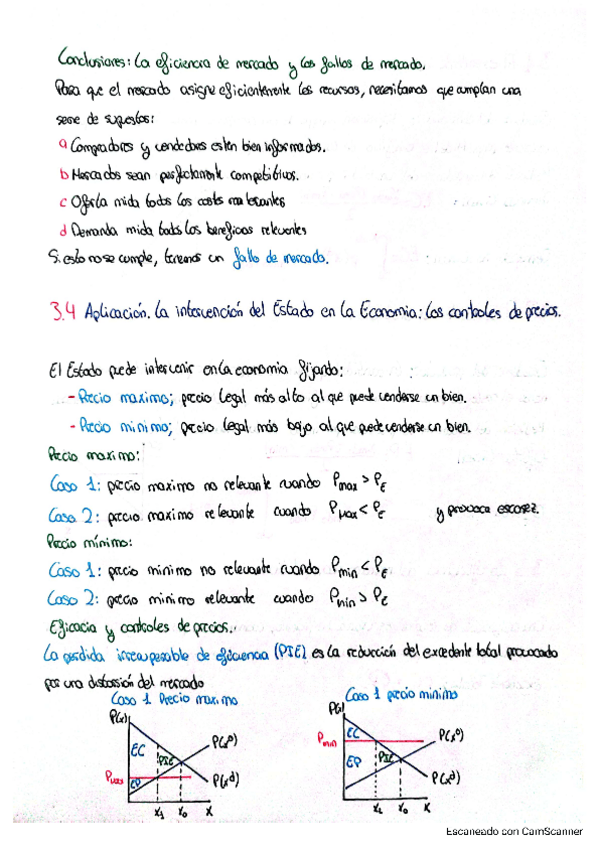 Conclusiones: La eficiencia de mercado y los fallos de mercado.
Para que el mercado asigne eficientemente los recursos, necesitamos que cumplan una
serie de supuestos:
a Compradores y vendedores estén bien informados.
b Mercados sean perfectamente competitivos.
c Oferta mida todos los costes relevantes
d Demanda mida todos los beneficios relevantes
Si esto no se cumple, tenemos un fallo de mercado.
3.4 Aplicación. La intervención del Estado en la Economía: los controles de precios.
El Estado puede intervenir en la economía fijando:
- Precio maximo; precio legal más alto al que puede venderse un bien.
- Precio minimo; precio legal más bajo al que puede venderse un bien.
Precio maximo:
Caso 1: precio maximo no relevante cuando Pmax > PE
Caso 2: precio maximo relevante cuando PMax < PE y provoca escasez.
Precio mínimo:
Caso 1: precio minimo no relevante cuando Pmin < PE
Caso 2: precio minimo relevante cuando Pmin > PE
Eficacia y controles de precios.
La perdida irrecuperable de eficiencia (PIE) es la reducción del excedente total provocado
por una distorsión del mercado
Caso 1 Precio maximo
Caso 1 precio minimo
P(x)
EC
PIE
P(x⁰)
Pmax
EP
P(xᵈ)
x₁ x₀ X
P(x)
Pmin
EC
P(x⁰)
EP
PIE
P(xᵈ)
x₁ x₀ X
Escaneado con CamScanner